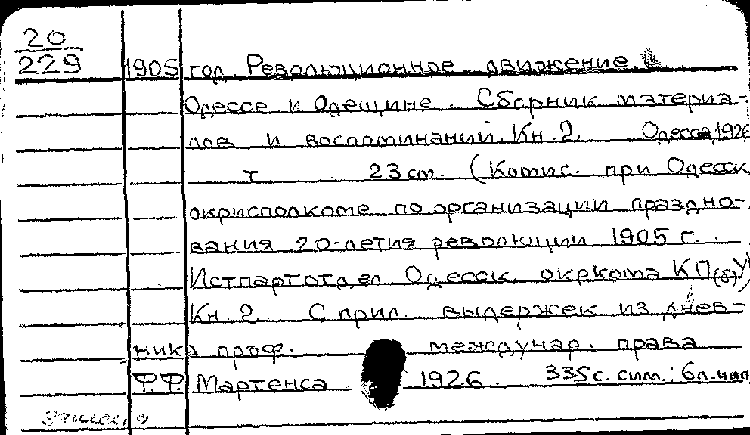 20
229
1905 год. Революционное движение в
Одессе и Одещине. Сборник материа-
лов и воспоминаний. Кн. 2. Одесса, 1926
т 23 см. (Комис. при Одесск.
окрисполкоме по организации праздно-
вания 20-летия революции 1905 г.
Истпартотдел Одесск. окркома КП(б)У)
Кн. 2. С прил. выдержек из днев-
ника проф. междунар. права
Ф.Ф. Мартенса 1926. 335 с. с илл.; 6 л. илл